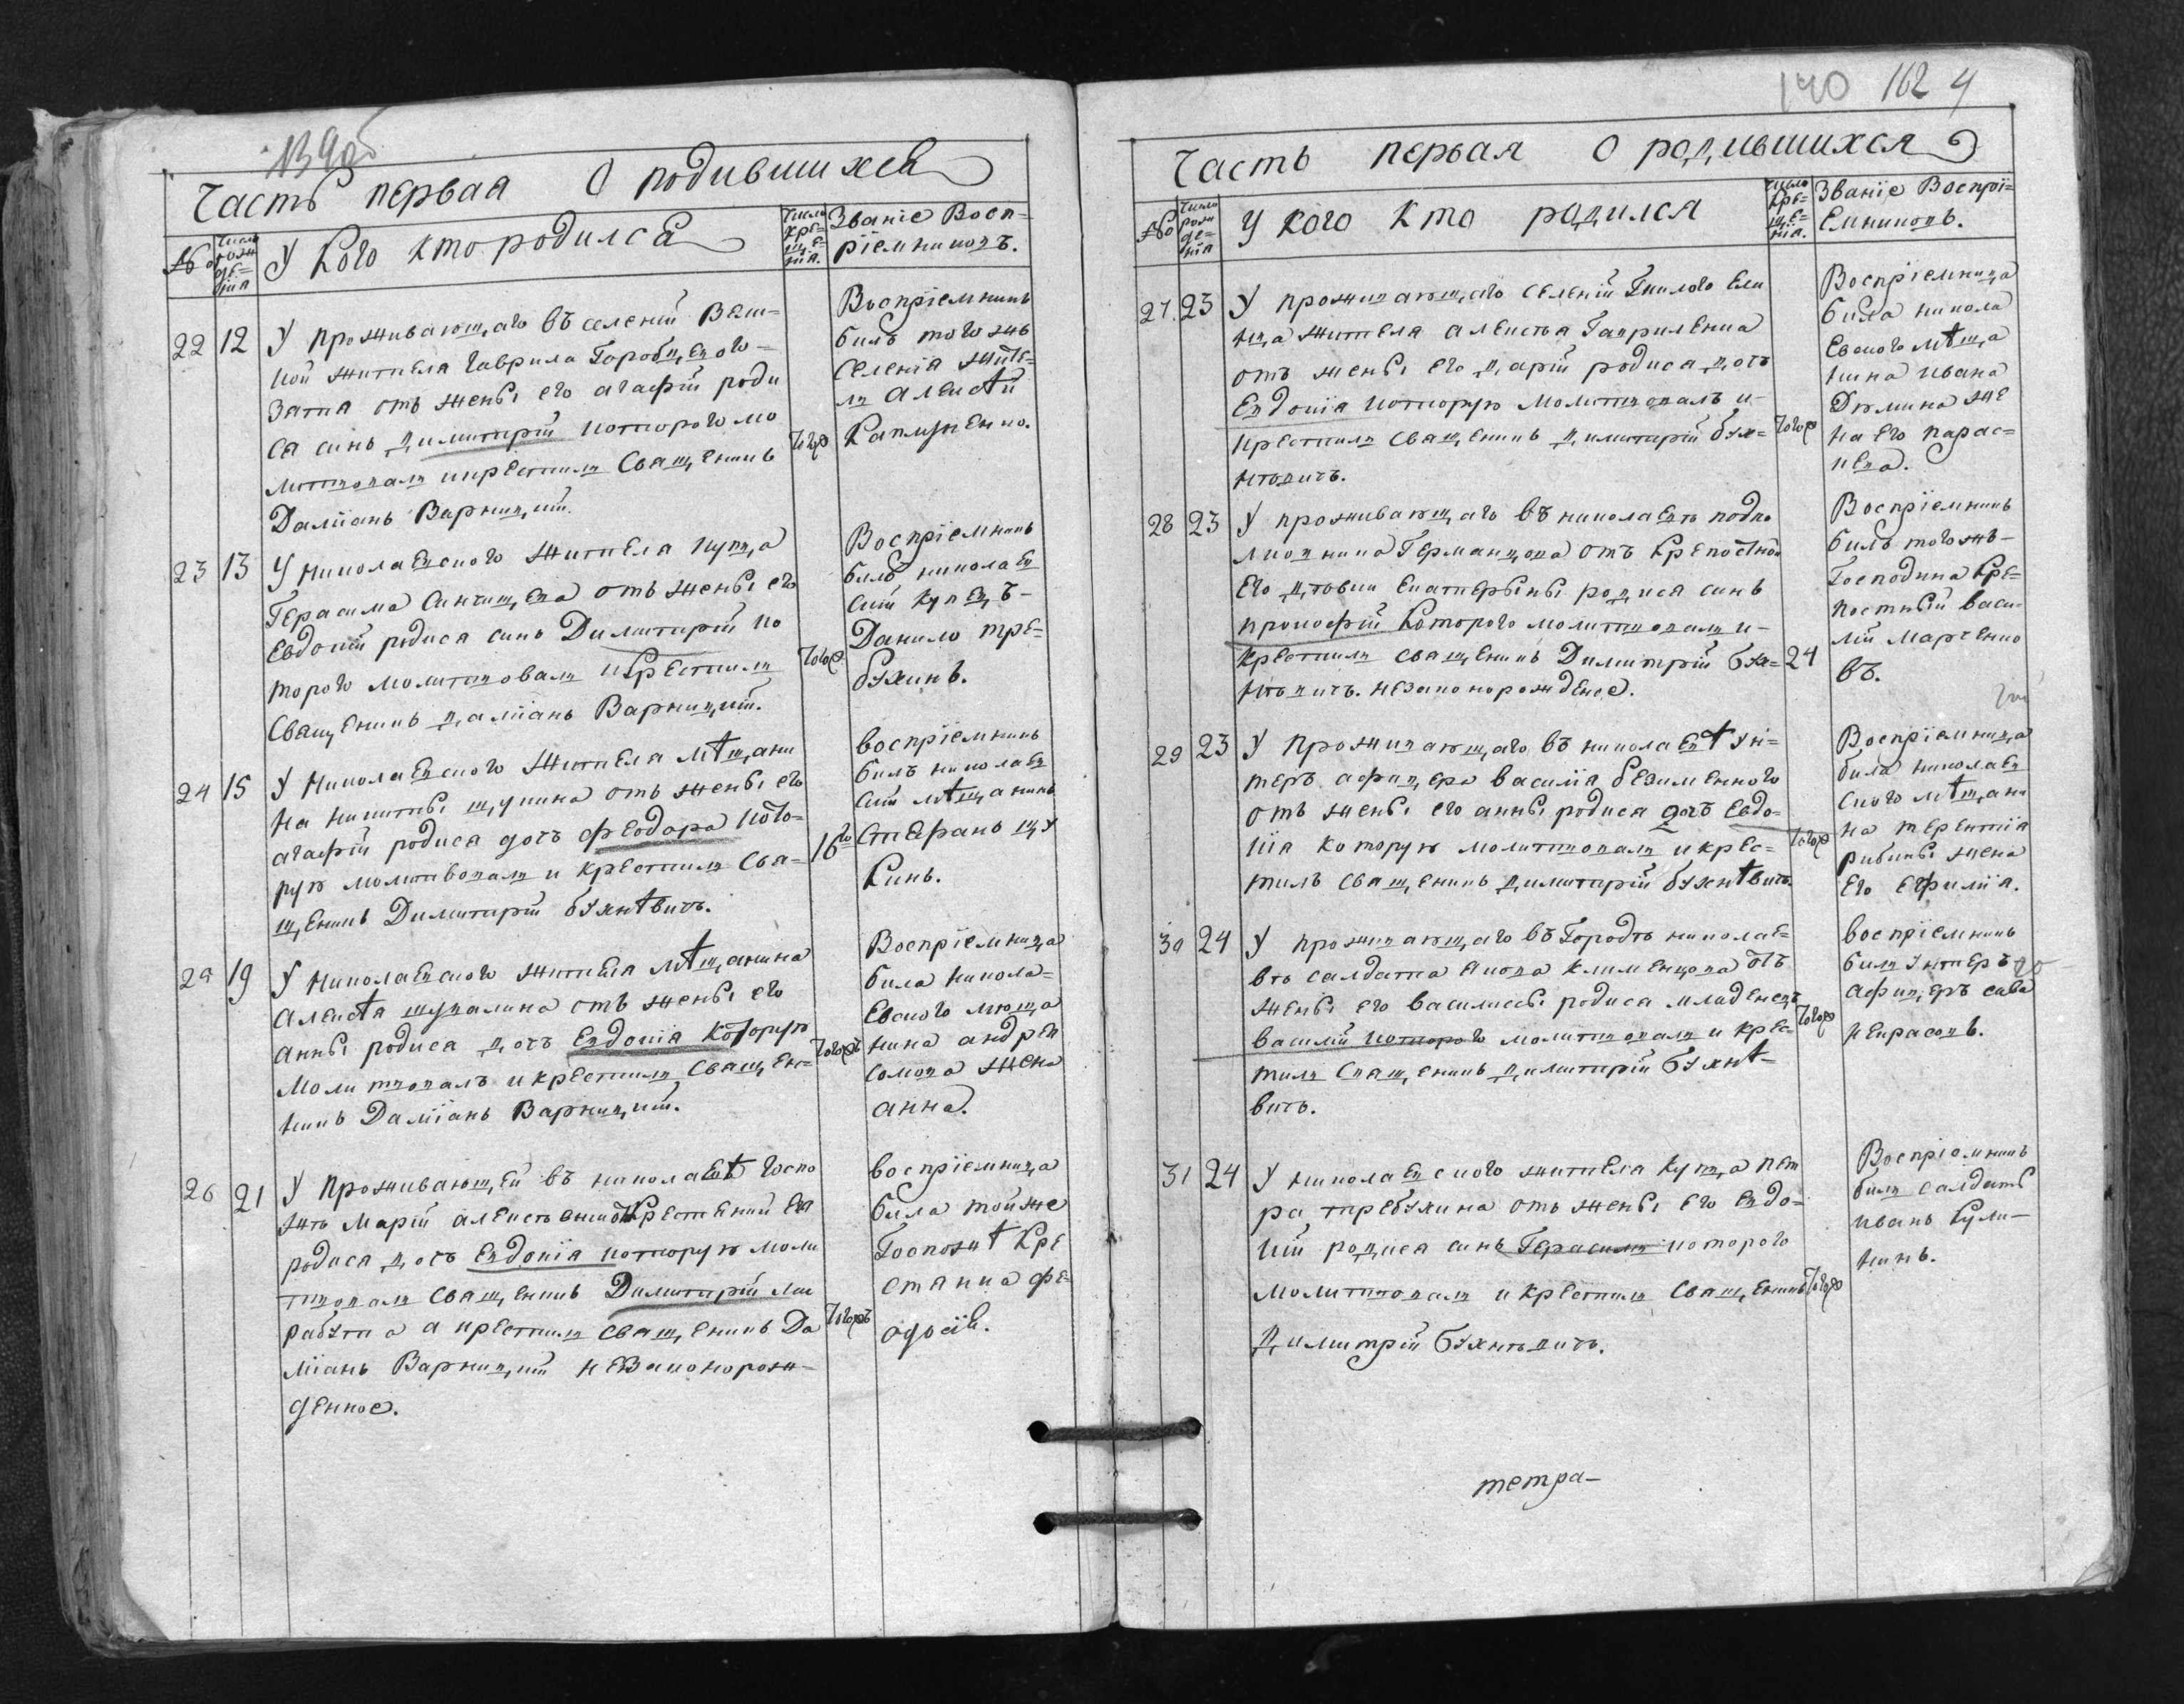 139об
Часть первая О родившихся
№
Число рождения
У Кого кто родился
Число крещения.
Званіе Восп=
ріемниковъ.
22 12 У проживающаго въ селеніи
ной жителя Гаврила Горобц
затя отъ жены его агафіи роди
ся синъ Димитрій которого мо
литвовалъ и крестилъ Священикъ
Даміанъ Варницкій.
того
Воспріемникъ
билъ того жъ
селенія жите=
ль Алексѣй
23 13 У николаевского жителя купца
Герасима от жены его
Евдокіи родися синъ Димитрій ко
торого молитвовалъ и крестилъ
Священикъ даміанъ Варницкій.
того
Воспріемникъ
билъ николаев
скій купецъ-
Данило тре=
бухинъ.
24 15 У Николаевского жителя мѣщани
на никиты щукина отъ жены его
агафіи родися дочъ феодора кото=
рую молитвовалъ и крестилъ Свя=
щеникъ Димитрій бухнѣвичъ.
16го
воспріемникъ
билъ николаев
скій мѣщанинъ
Стефанъ щу
кинъ.
25 19 У Николаевского жителя мѣщанина
Алексѣя шувалина отъ жены его
анны родися дочъ Евдокія которую
молитвовалъ и крестилъ Священ=
никъ Даміанъ Варницкій.
тогожъ
Воспріемница
била никола=
евского мѣща
нина андрея
сомова жена
анна.
26 21 У проживающей въ николаевѣ госпо
жѣ Маріи крестеній ея
родися дочъ Евдокія которую моли
твовалъ священикъ Димитрій
а крестилъ священикъ Да
міанъ Варницкій незаконорож=
денное.
тогожъ
воспріемница
била тойже
Госпожѣ Кре
стянка фе=
одосія.
140 162 4
Часть первая О родившихся
№
Число рождения
У кого кто родился
Число крещения.
Званіе Воспрі=
емниковъ.
27. 23 У проживающаго селеній Гнилого Ела
нца жителя алексѣя Гавриленка
отъ жены его дарій родися дочъ
Евдокія которую молитвовалъ и-
крестилъ священикъ димитрій бух=
нѣвичъ.
того
Воспріемница
била никола
евского мѣща
нина ивана
Демина же
на его парас=
кева.
28 23 У проживающаго въ николаевѣ подпо
Германцова отъ крепостной
его дѣвки Екатерыны родися синъ
прокофій которого молитвовалъ и-
крестилъ священикъ Димитрій бух=
нѣвичъ. незаконорожденое.
24
Воспріемникъ
билъ того жъ-
Господина кре=
постный васи
лій Марченко
въ.
29 23 У проживающаго въ николаевѣ ун=
теръ афицера василія безименного
отъ жены его анны родися дочъ Евдо=
кія которую молитвовалъ и крес=
тилъ священикъ димитрій бухнѣвичъ.
того
Воспріемница
била николаев
ского мѣщани
на терентія
рибины жена
его ефимія.
30 24 У проживающаго въ Городѣ николае=
вѣ салдата якова клименцова отъ
жены его василисы родися младенецъ
василій которого молитвовалъ и крес=
тилъ священикъ димитрій Бухнѣ-
вичъ.
того
воспріемникъ
билъ унтеръ
афицеръ сава
некрасовъ.
31 24 У николаевского жителя купца пет
ра требухина отъ жены его евдо=
кій родися синъ Герасимъ которого
молитвовалъ и крестилъ священикъ
димитрій Бухнѣвичъ.
того
Воспріемникъ
билъ салдатъ
иванъ кули-
кинъ.
тетра-